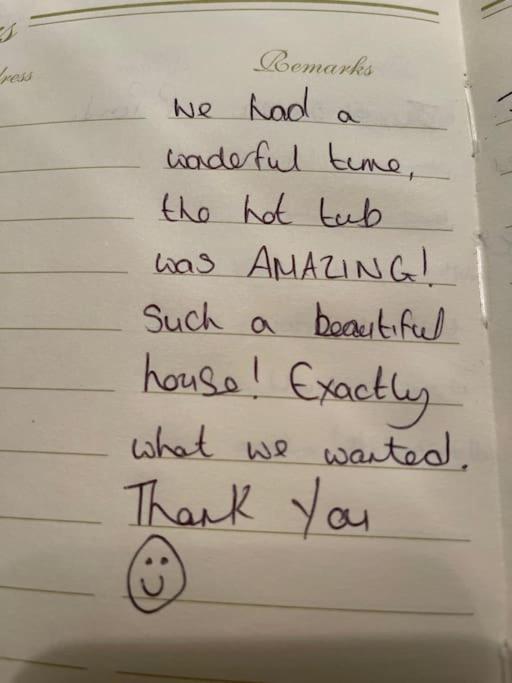 Remarks
ress
We had a
wonderful time,
the hot tub
was AMAZING!
Such a beautiful
house! Exactly
what we wanted.
Thank You